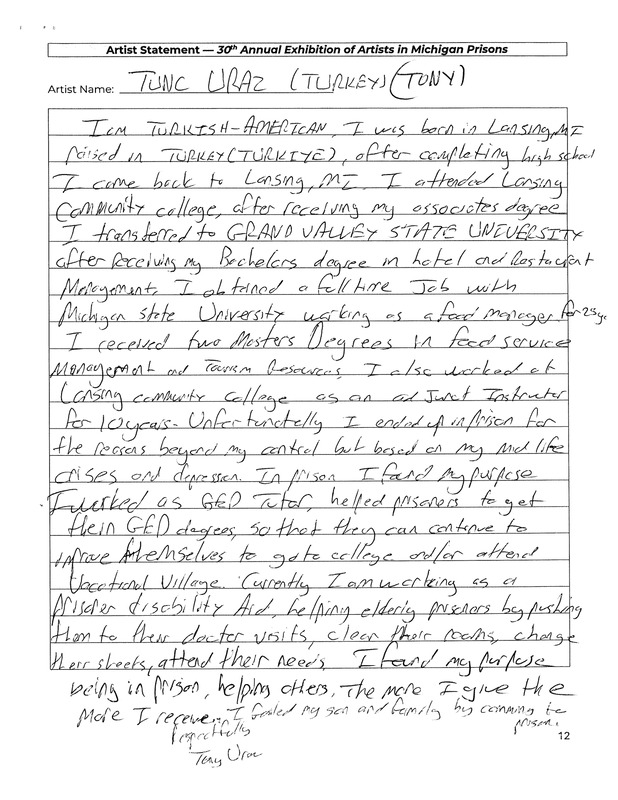 Artist Statement — 30th Annual Exhibition of Artists in Michigan Prisons
Artist Name: TUNC URAZ (TURKEY) (TONY)
I am TURKISH-AMERICAN, I was born in Lansing, MI
raised in TURKEY (TÜRKIYE), after completing high school
I come back to Lansing, MI. I attended Lansing
Community college, after receiving my associates degree
I transferred to GRAND VALLEY STATE UNIVERSITY
after receiving my Bachelors degree in hotel and Restaurant
Management, I obtained a full time Job with
Michigan state University working as a food manager for 25 yr.
I received two Masters Degrees in food service
Management and Tourism Resources, I also worked at
Lansing community College as an ad Junct Instructor
for 10 years. Unfortunatelly I ended up in prison for
the reasons beyond my control but based on my mid life
crises and depression. In prison I found my purpose
I worked as GED Tutor, helped prisoners to get
their GED degrees, so that they can continue to
improve themselves to go to college and/or attend
Vocational Village. Currently I am working as a
prisoner disability Aid, helping elderly prisoners by pushing
them to their doctor visits, clean their rooms, change
their sheets, attend their needs, I found my purpose
being in prison, helping others, The more I give the
more I receive. I failed my son and family by comming to
prison.
Respectfully
Tony Uraz
12